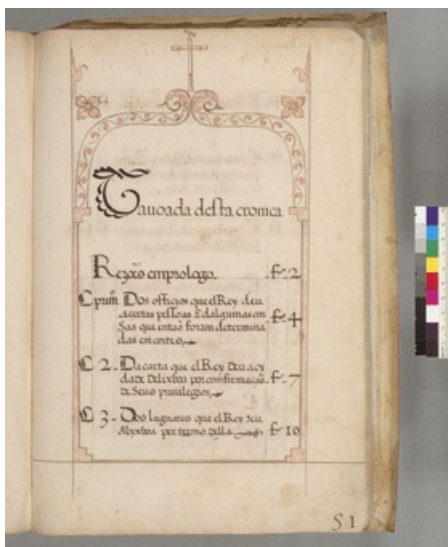 Tauoada desta cronica
Rezões em prologo. fº 2
C prim. Dos officios que el Rey deu
a certas pessoas E dalgumas cou
sas que entaõ foram determina
das em cortes. fº 4
C 2. Da carta que el Rey deu a cy
dade de lixboa por comfirmaçaõ
de seus priuilegios. fº 7
C 3. Dos luguares que el Rey deu
a lyxboa per termo della fº 10
S1